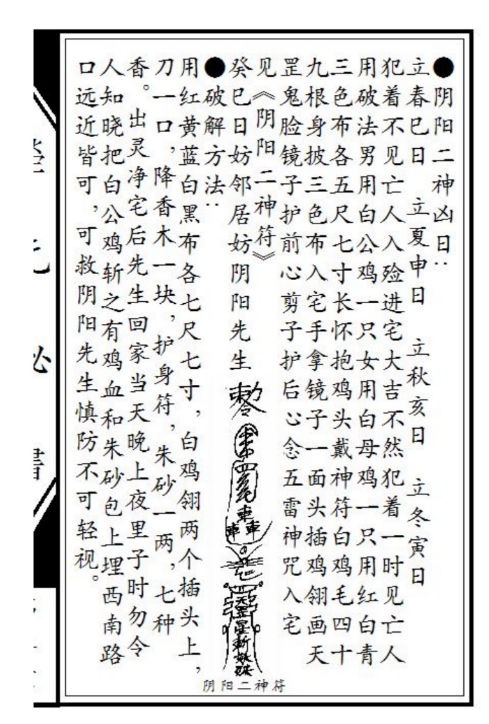 ●阴阳二神凶日：
立春巳日 立夏申日 立秋亥日 立冬寅日
犯着不见亡人入殓进宅大吉不然犯着一时见亡人
用破法男用白公鸡一只女用白母鸡一只用红白青
三色布各五尺七寸长怀抱鸡头戴神符白鸡毛四十
九根身披三色布入宅手拿镜子一面头插鸡翎画天
罡鬼脸镜子护前心剪子护后心念五雷神咒入宅
见《阴阳二神符》
癸巳日妨邻居妨阴阳先生
●破解方法：
用红黄蓝白黑布各七尺七寸，白鸡翎两个插头上，
刀一口，降香木一块，护身符，朱砂一两，七种
香。出灵净宅后先生回家当天晚上夜里子时勿令
人知晓把白公鸡斩之有鸡血和朱砂包上埋西南路
口远近皆可，可救阴阳先生慎防不可轻视。
阴阳二神符